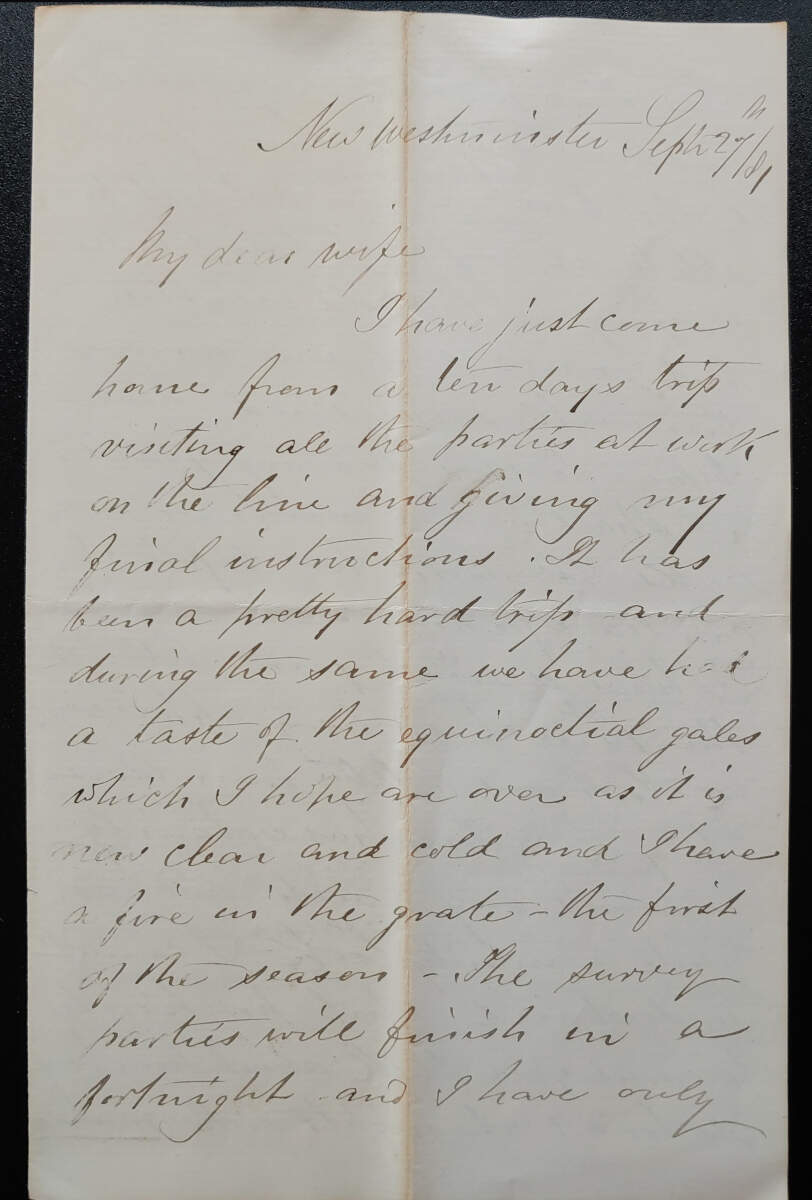 New Westminster Sept 27th/81
My dear wife
I have just come
home from a ten days trip
visiting all the parties at work
on the line and giving my
final instructions. It has
been a pretty hard trip and
during the same we have had
a taste of the equinoctial gales
which I hope are over as it is
now clear and cold and I have
a fire in the grate - the first
of the season - The survey
parties will finish in a
fortnight and I have only